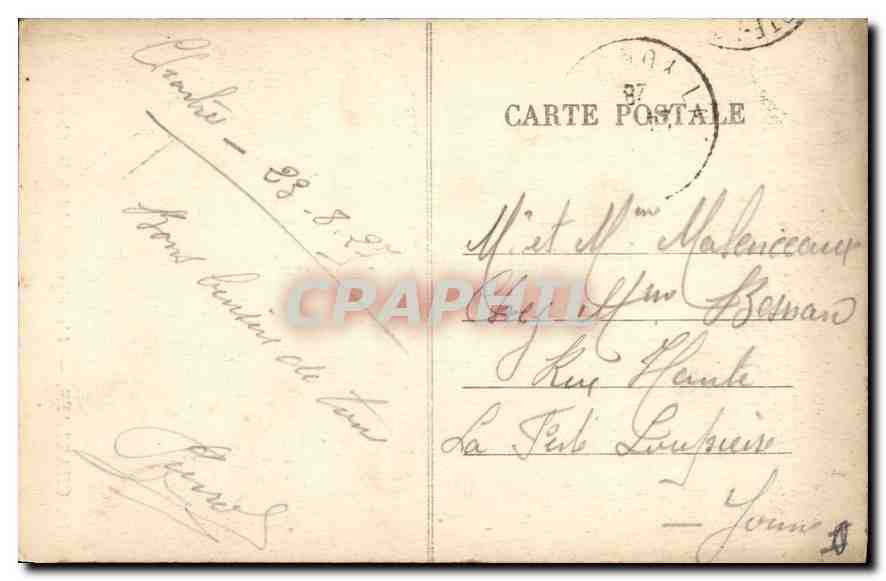 Chartres - 23-8-27
Bons baisers de tous
CARTE POSTALE
Mr et Mme Malenceaux
Chez Mme Besnard
Rue Haute
La Ferté Loupière
- Yonne
CPAPHIL